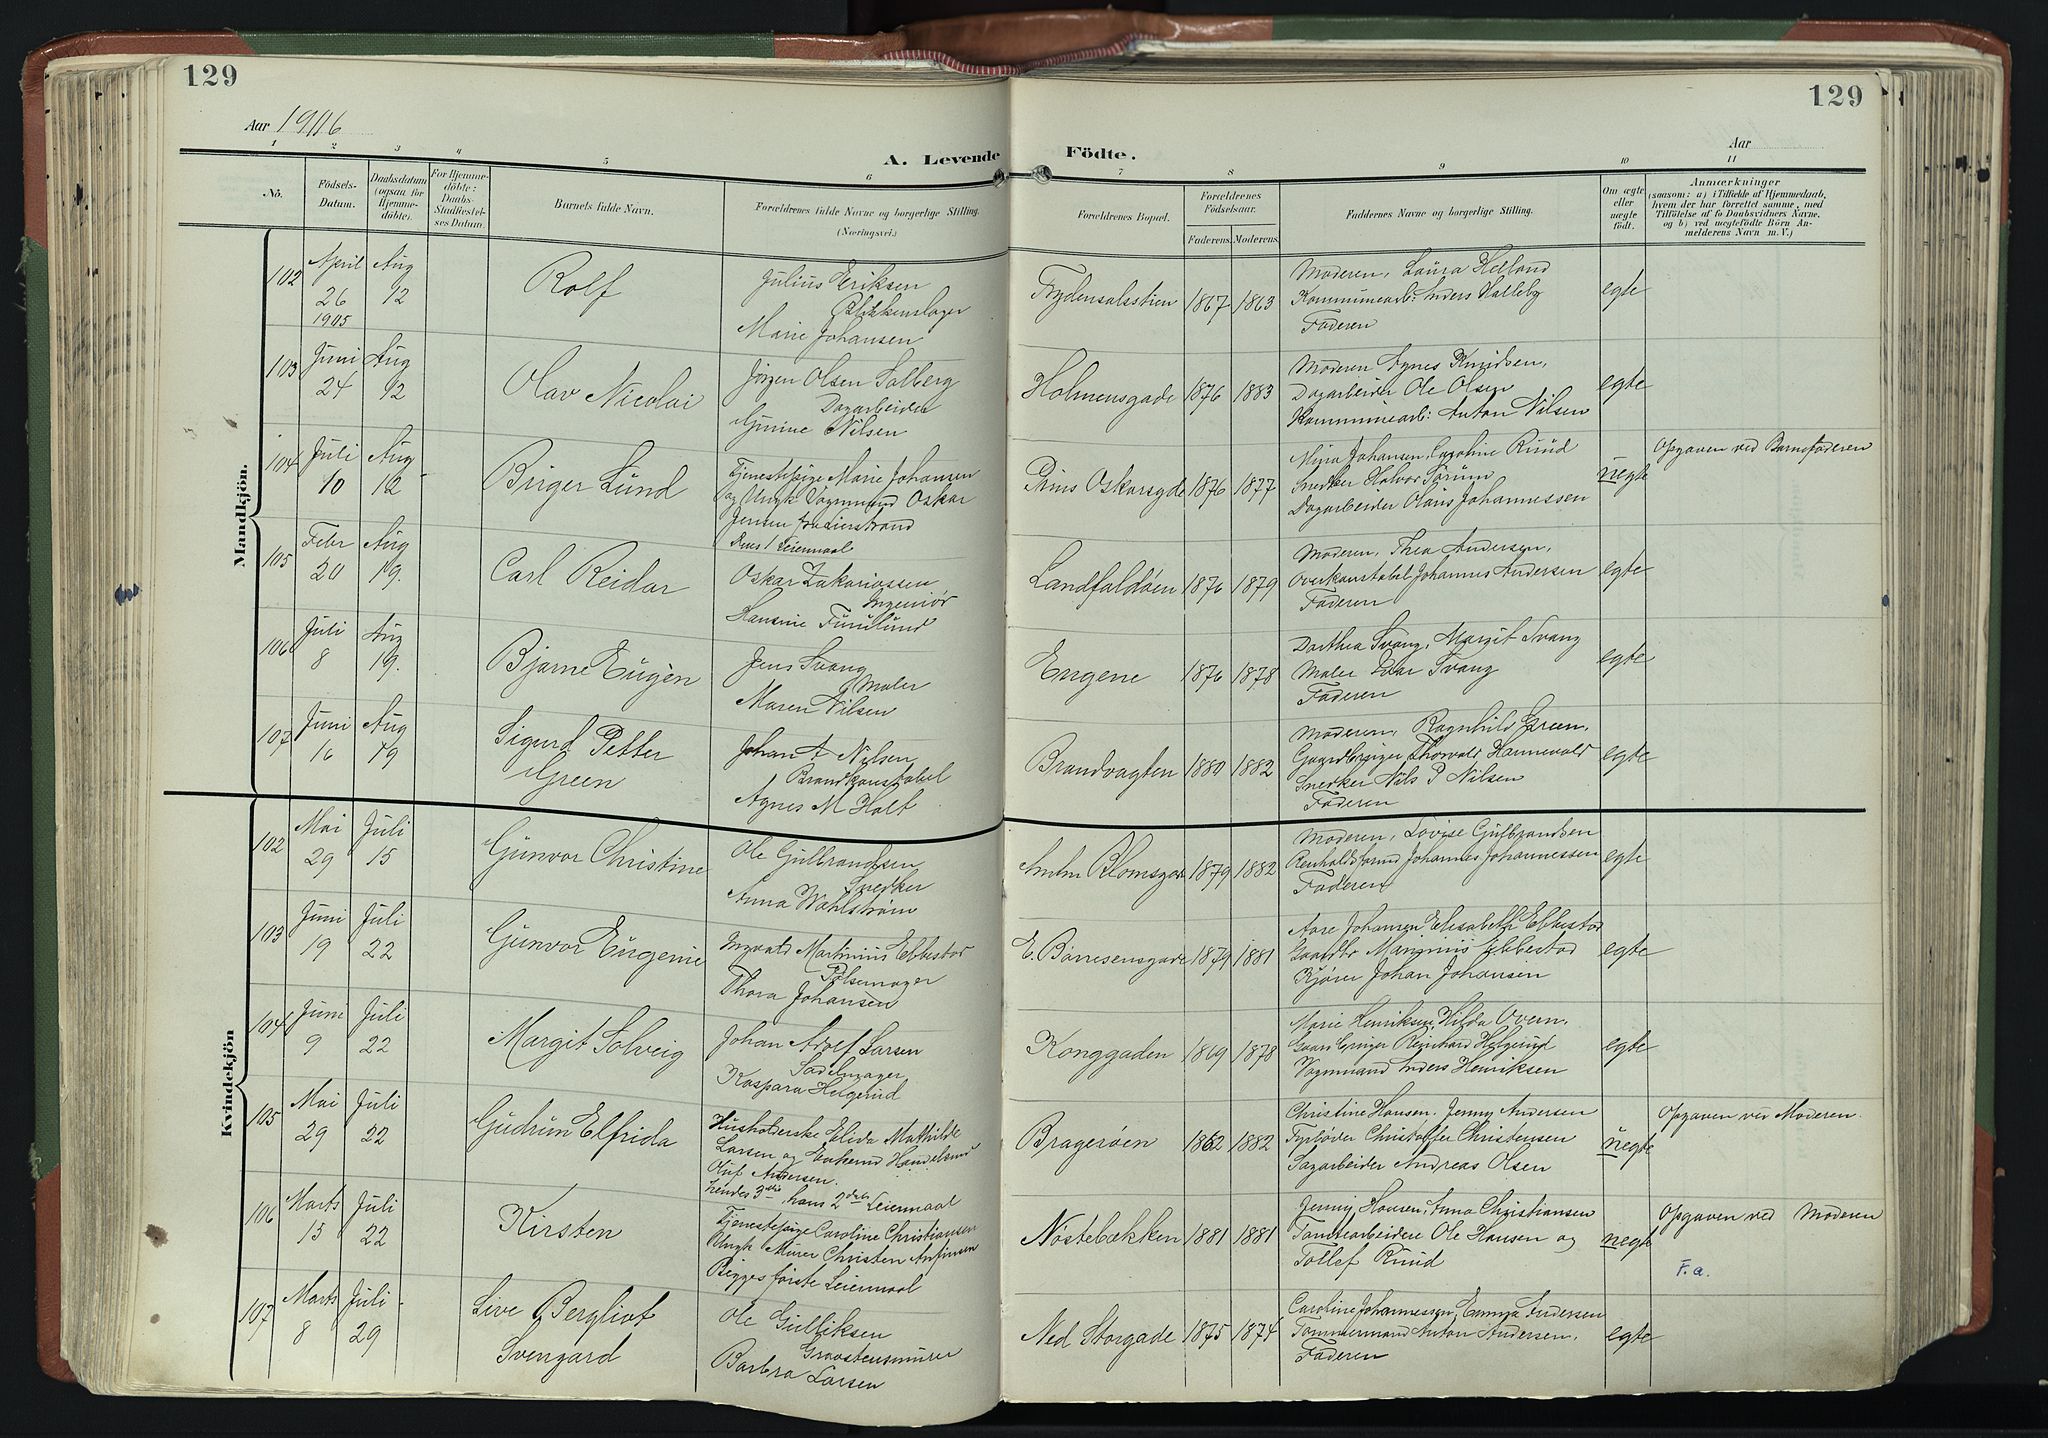 129
129
Aar 1906
Aar
A. Levende Födte.
1 2 3 4 5 6 7 8 9 10 11
No.
Födsels-
Datum.
Daabsdatum
(ogsaa for
Hjemme-
döbte).
For Hjemme-
döbte:
Daabs-
Stadfæstel-
ses Datum.
Barnets fulde Navn.
Forældrenes fulde Navne og borgerlige Stilling.
(Næringsvei.)
Forældrenes Bopæl.
Forældrenes
Födselsaar.
Faderens. Moderens.
Faddernes Navne og borgerlige Stilling.
Om ægte
eller
uægte
födt.
Anmærkninger
(saasom: a) i Tilfælde af Hjemmedaab,
hvem der har forrettet samme, med
Tilföielse af to Daabsvidners Navne,
og b) ved uægtefödte Börn An-
melderens Navn m. V.)
Mandkjön.
102
April
26
1905
Aug
12
Rolf
Julius Eriksen
Blikkenslager
Marie Johansen
Frydensalsstien
1867 1863
Moderen, Laura Helland
Kommunearb: Anders Halleby
Faderen
egte
103
Juni
24
Aug
12
Olav Nicolai
Jörgen Olsen Solberg
Dagarbeider
Gurine Nilsen
Holmensgade
1876 1883
Moderen Agnes Knudsen,
Dagarbeider Ole Olsen
Kommunearb: Anton Nilsen
egte
104
Juli
10
Aug
12
Birger Lund
Tjenestepige Marie Johansen
og Ungk Vognmand Oskar
Jensen
Dens 1 Leiermaal
Prins Oskarsgde
1876 1877
Mina Johansen, Caroline Ruud
Snedker Halvor Sörum
Dagarbeider Olaus Johannessen
uegte
Opgaven ved Barnefaderen
105
Febr
20
Aug
19.
Carl Reidar
Oskar Zakariassen
Ingeniør
Hansine Furulund
Landfaldøen
1876 1879
Moderen, Thea Andersen,
Overkonstabel Johannes Andersen
Faderen
egte
106
Juli
8
Aug
19.
Bjarne Eugen
Jens Svang
Maler
Maren Nilsen
Engene
1876 1878
Dorthea Svang, Margit Svang
Maler Svang
Faderen
egte
107
Juni
16
Aug
19
Sigurd Petter
Green
Johan A Nilsen
Brandkonstabel
Agnes M Holt
Brandvagten
1880 1882
Moderen, Ragnhild Green,
Gaardbruger Thorvald Hannevold
Snedker Nils P Nilsen
Faderen
egte
Kvindekjön
102
Mai
29
Juli
15
Gunvor Christine
Ole Gulbrandsen
Snedker
Anna Wahlstrøm
Blomsgade
1879 1882
Moderen, Lovise Gulbrandsen
Johannes Johannessen
Faderen
egte
103
Juni
19
Juli
22
Gunvor Eugenie
Ingvald Martinius Ebbestad
Pølsemager
Thora Johansen
E. Børresensgade
1879 1881
Aase Johansen Elisabeth Ebbestad
Gaardbr Ebbestad
Kjører Johan Johansen
egte
104
Juni
9
Juli
22
Margit Solveig
Johan Adolf Larsen
Sadelmager
Kaspara Helgerud
Konggaden
1869 1878
Marie Henriksen, Hilda Overn,
Gaardbruger Reinhard Helgerud
Vognmand Anders Henriksen
egte
105
Mai
29
Juli
22
Gudrun Elfrida
Husholderske Elida Mathilde
Larsen og Enkemd Handelsmd
Oluf Andersen.
hendes 3die, hans 2det Leiermaal
Bragerøen
1862 1882
Christine Hansen, Jenny Andersen
Fyrbøder Christoffer Christensen
Sagarbeider Andreas Olsen
uegte
Opgaven ved Moderen.
106
Marts
15
Juli
22
Kirsten
Tjenestepige Caroline Christiansen
Ungk Murer Christen
Begges første Leiermaal
Nøstebækken
1881 1881
Jenny Hansen, Anna Christiansen
Tomtearbeidere Ole Hansen og
Tollef Ruud
uegte
Opgaven ved Moderen
F.a.
107
Marts
8
Juli
29
Live Bergliot
Svengard
Ole Gulliksen
Graastensmurer
Barbra Larsen
Ned Storgade
1875 1874
Caroline Johannessen, Emma Andersen
Tømmermand Anton Andersen,
Faderen
egte